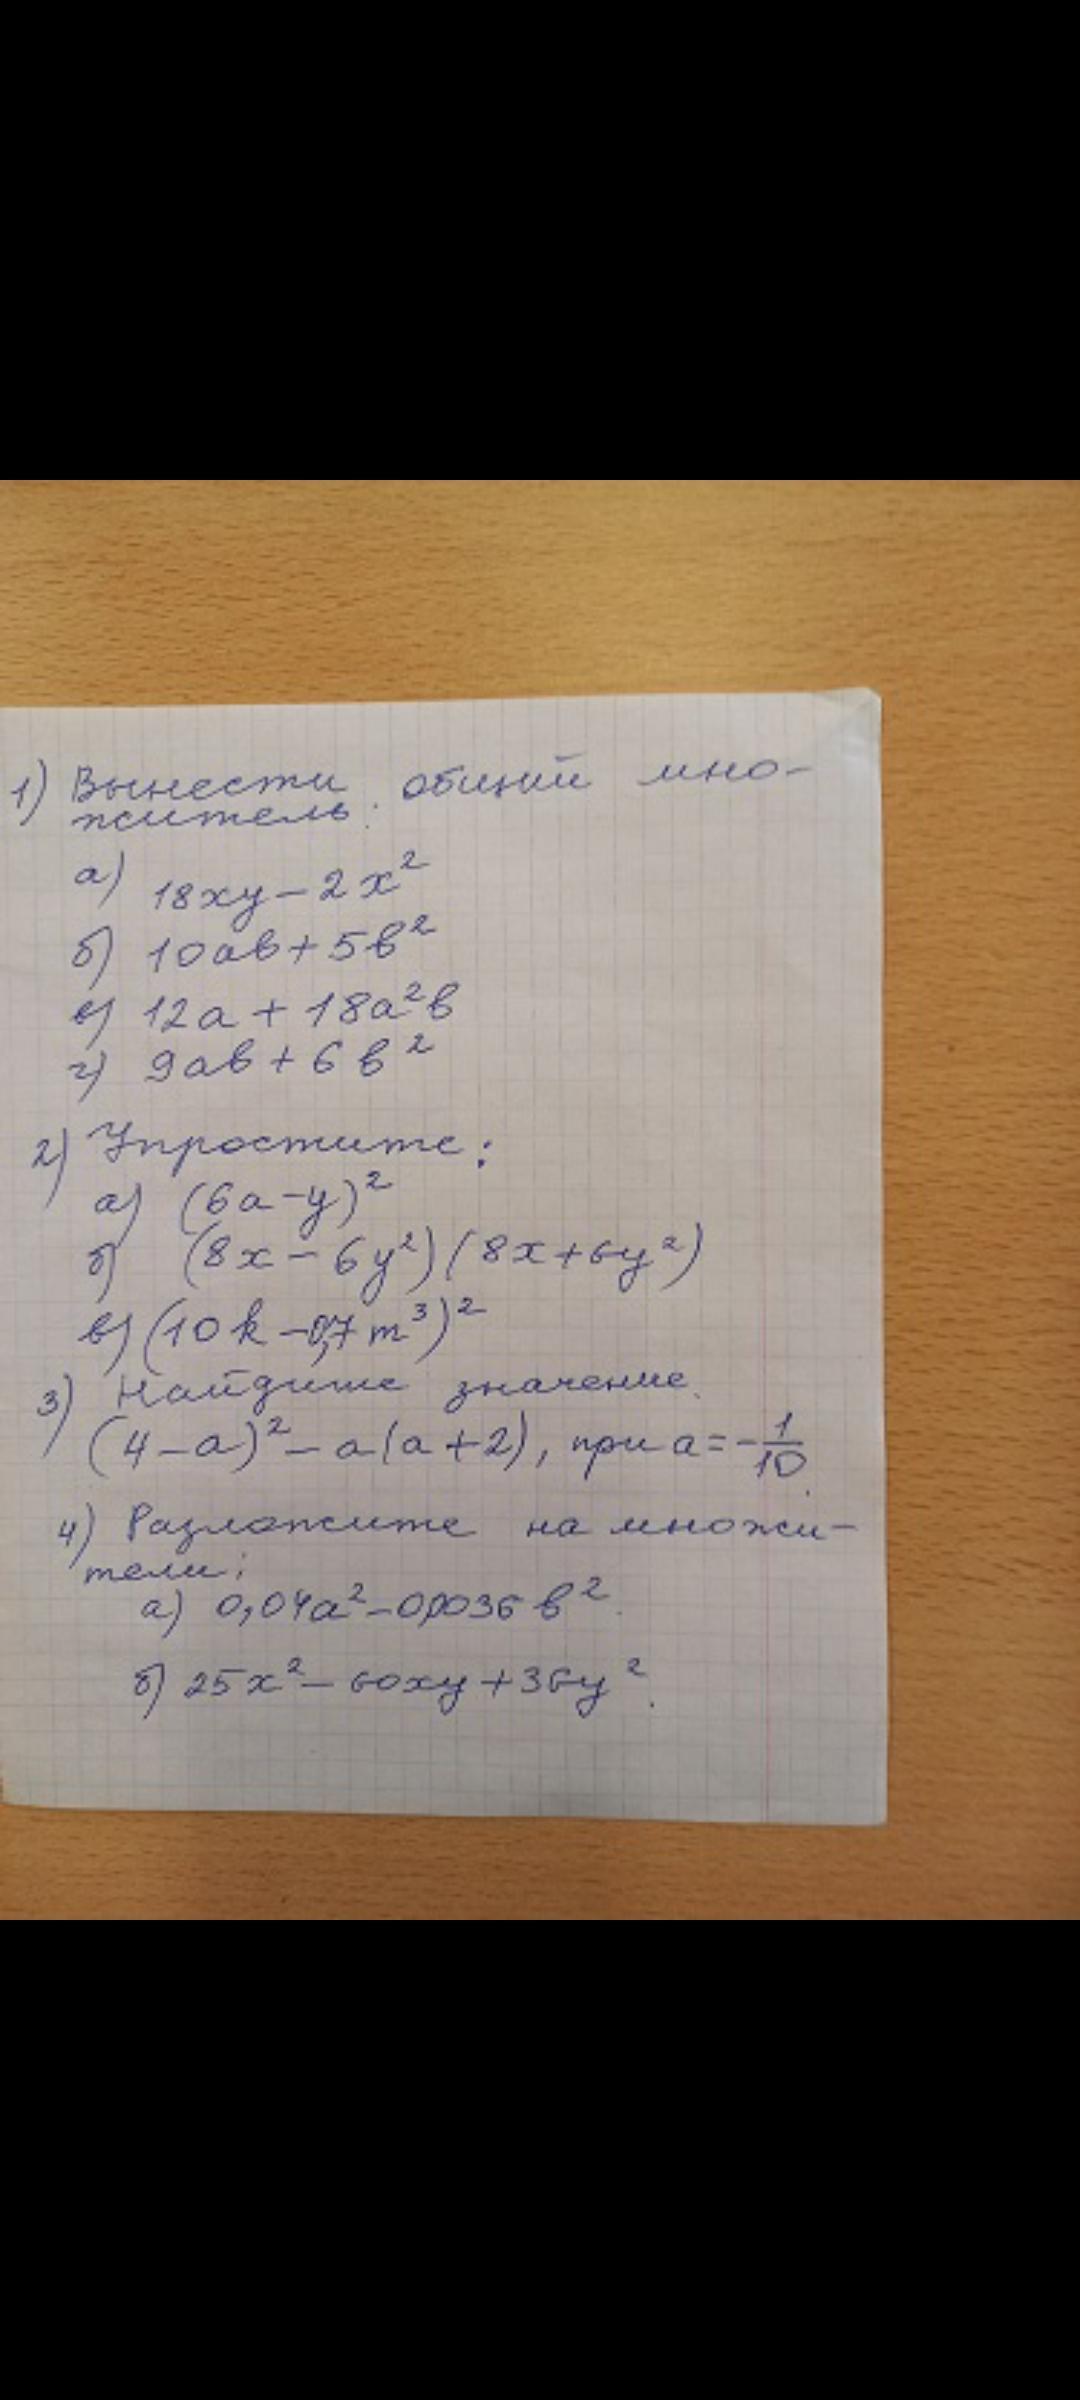 1) Вынести общий мно-
житель:
а) 18xy - 2x²
б) 10ab + 5b²
в) 12a + 18a²b
г) 9ab + 6b²
2) Упростите:
а) (6a - y)²
б) (8x - 6y²)(8x + 6y²)
в) (10k - 0,7m³)²
3) Найдите значение
(4 - a)² - a(a + 2), при a = -1/10.
4) Разложите на множи-
тели:
а) 0,04a² - 0,0036b².
б) 25x² - 60xy + 36y².